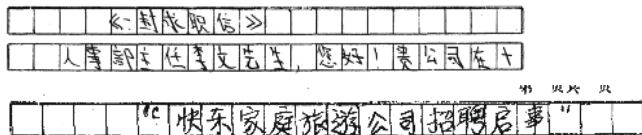 《一封求职信》
人事部主任李文先生，您好！贵公司在十
第 页共 页
“快东家庭旅游公司招聘启事”